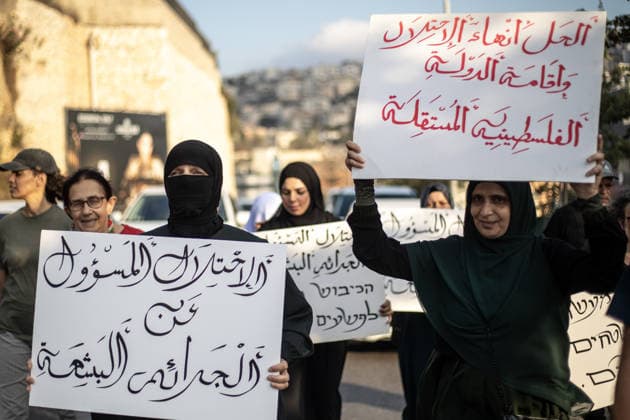 الحل انهاء الإحتلال
واقامة الدولة
الفلسطينية المستقلة
الاحتلال المسؤول
عن
الجرائم البشعة
الجرائم
הכיבוש
לפשעים